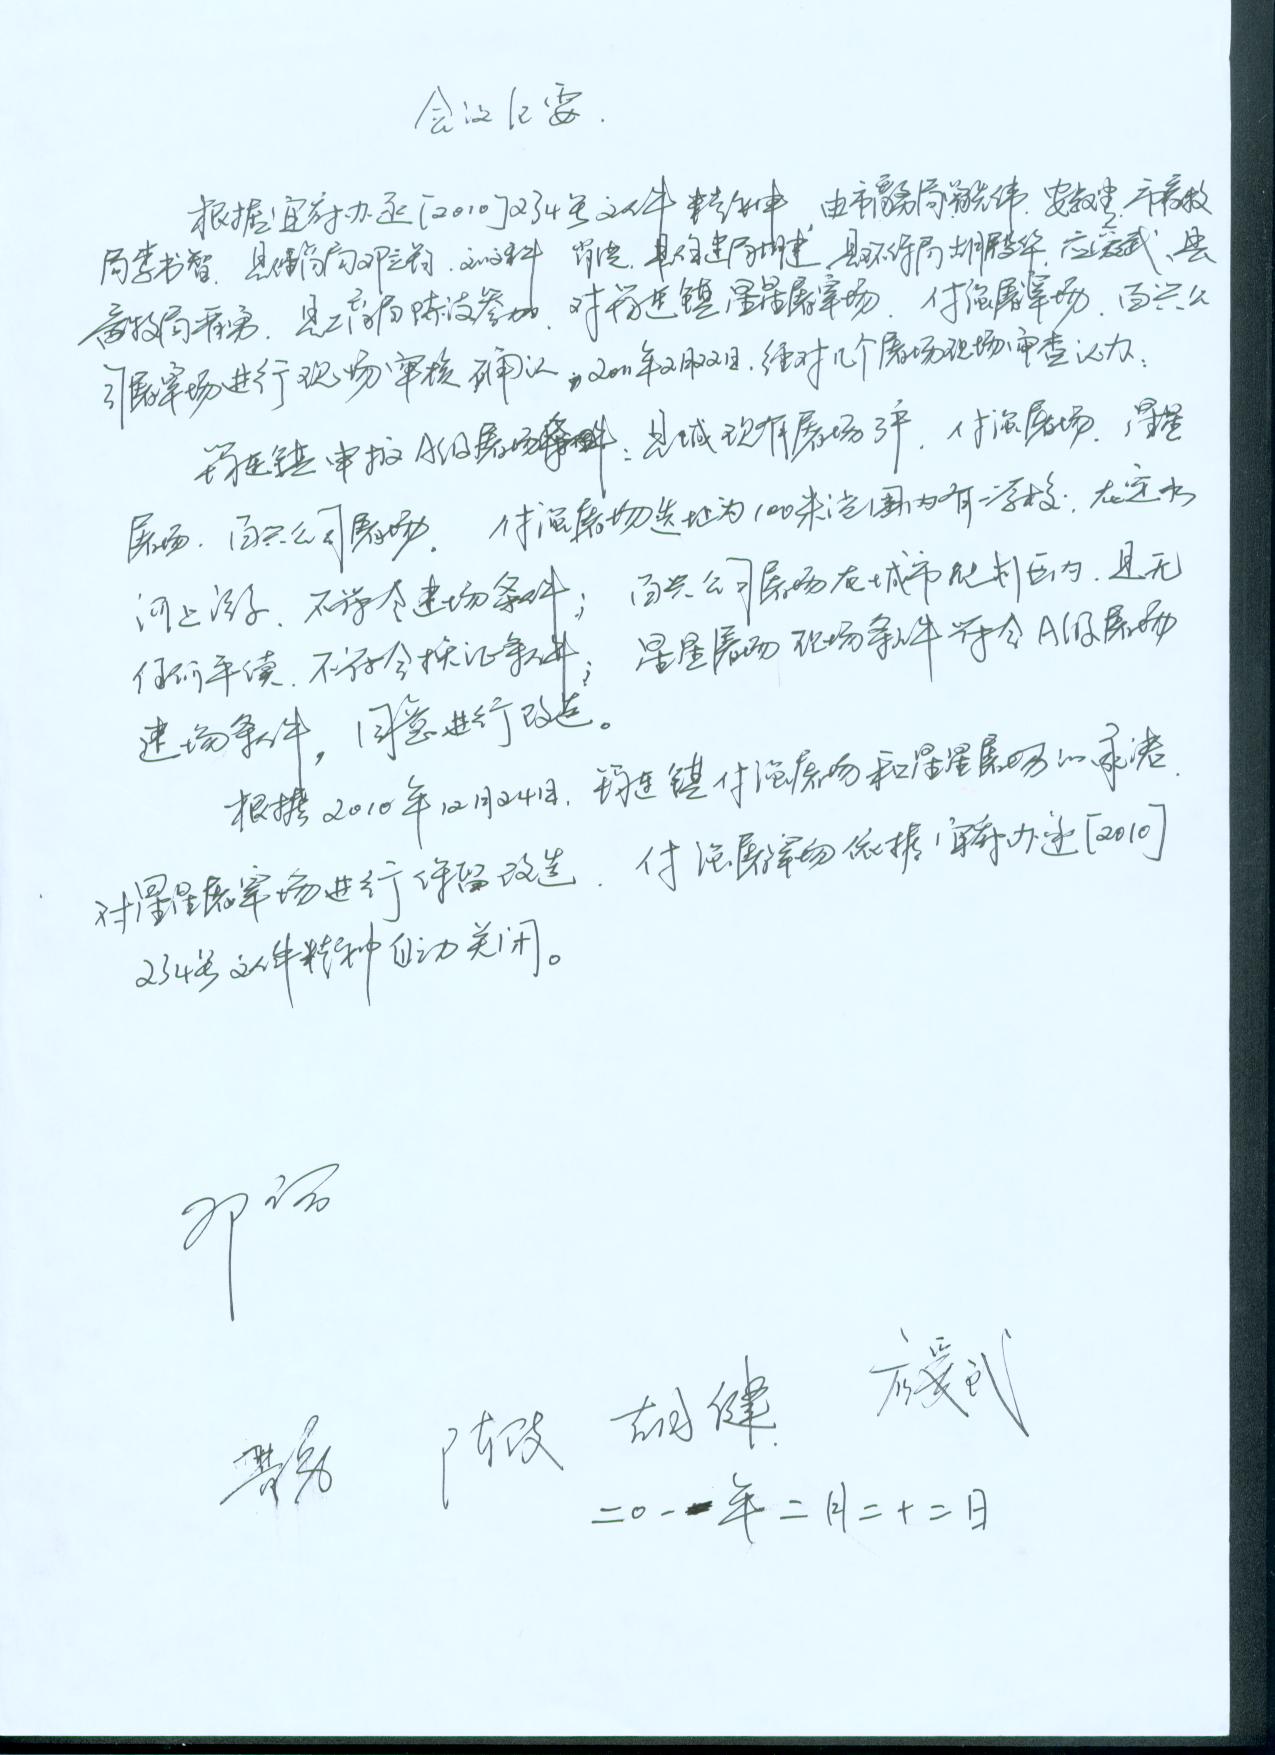 会议纪要.
根据宜府办函[2010]234号文件精神,由市商务局 伟、安 、市畜牧
局李书智、县经商局邓 、 科、肖 、县住建局胡建、县环保局胡 华、应爱武、县
畜牧局 勇、县工商局陈波参加,对筠连镇星星屠宰场、付强屠宰场、百兴公
司屠宰场进行现场审核确认,2011年2月22日,经对几个屠场现场审查认为:
筠连镇申报A级屠场条件:县城现有屠场3户,付强屠场、星星
屠场、百兴公司屠场。付强屠场选址为100米范围内有一学校,在定水
河上游,不符合建场条件;百兴公司屠场在城市规划区内,且无
任何手续,不符合换证条件;星星屠场现场条件符合A级屠场
建场条件,同意进行改造。
根据2010年12月24日,筠连镇付强屠场和星星屠场的承诺,
对星星屠宰场进行保留改造,付强屠宰场依据宜府办函[2010]
234号文件精神自动关闭。
邓
勇 陈波 胡健 应爱武
二0一一年二月二十二日